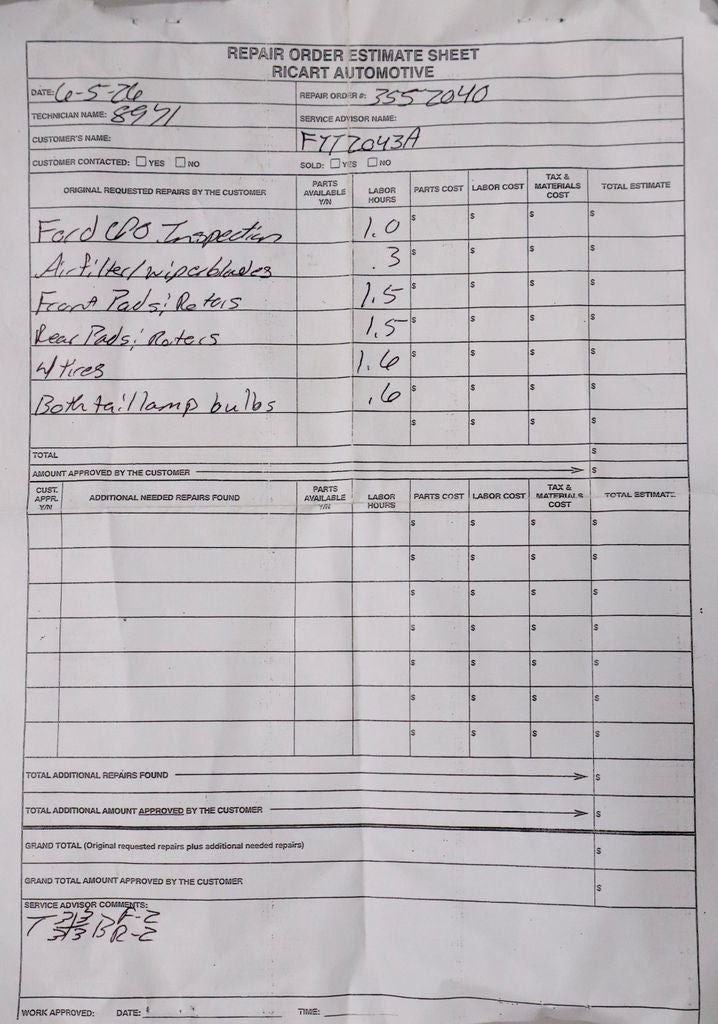 REPAIR ORDER ESTIMATE SHEET
RICART AUTOMOTIVE
DATE: 6-5-26 REPAIR ORDER #: 3552040
TECHNICIAN NAME: 8971 SERVICE ADVISOR NAME:
CUSTOMER'S NAME: FTT2043A
CUSTOMER CONTACTED: ☐ YES ☐ NO SOLD: ☐ YES ☐ NO
ORIGINAL REQUESTED REPAIRS BY THE CUSTOMER PARTS AVAILABLE Y/N LABOR HOURS PARTS COST LABOR COST TAX & MATERIALS COST TOTAL ESTIMATE
Ford CPO Inspection 1.0 $ $ $ $
Airfilter/wiperblades .3 $ $ $ $
Front Pads; Rotors 1.5 $ $ $ $
Rear Pads; Rotors 1.5 $ $ $ $
4 Tires 1.6 $ $ $ $
Both taillamp bulbs .6 $ $ $ $
$ $ $ $
TOTAL $
AMOUNT APPROVED BY THE CUSTOMER $
CUST. APPR. Y/N ADDITIONAL NEEDED REPAIRS FOUND PARTS AVAILABLE Y/N LABOR HOURS PARTS COST LABOR COST TAX & MATERIALS COST TOTAL ESTIMATE
$ $ $ $
$ $ $ $
$ $ $ $
$ $ $ $
$ $ $ $
$ $ $ $
$ $ $ $
TOTAL ADDITIONAL REPAIRS FOUND $
TOTAL ADDITIONAL AMOUNT APPROVED BY THE CUSTOMER $
GRAND TOTAL (Original requested repairs plus additional needed repairs) $
GRAND TOTAL AMOUNT APPROVED BY THE CUSTOMER $
SERVICE ADVISOR COMMENTS:
T 3/3 B F-2
3/3 R-2
WORK APPROVED: DATE: TIME: